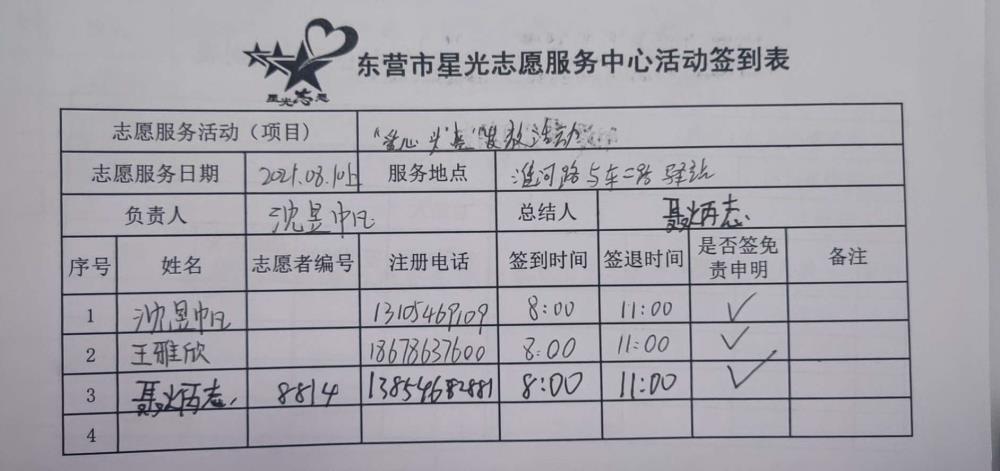 星光志愿
东营市星光志愿服务中心活动签到表
志愿服务活动（项目） "爱心义卖"发放活动
志愿服务日期 2021.08.10上 服务地点 淮河路与车二路驿站
负责人 沈昱帆 总结人 聂炳志
序号 姓名 志愿者编号 注册电话 签到时间 签退时间 是否签免责申明 备注
1 沈昱帆 13105469109 8:00 11:00 ✓
2 王雅欣 18678637600 8:00 11:00 ✓
3 聂炳志 8814 13854682881 8:00 11:00 ✓
4